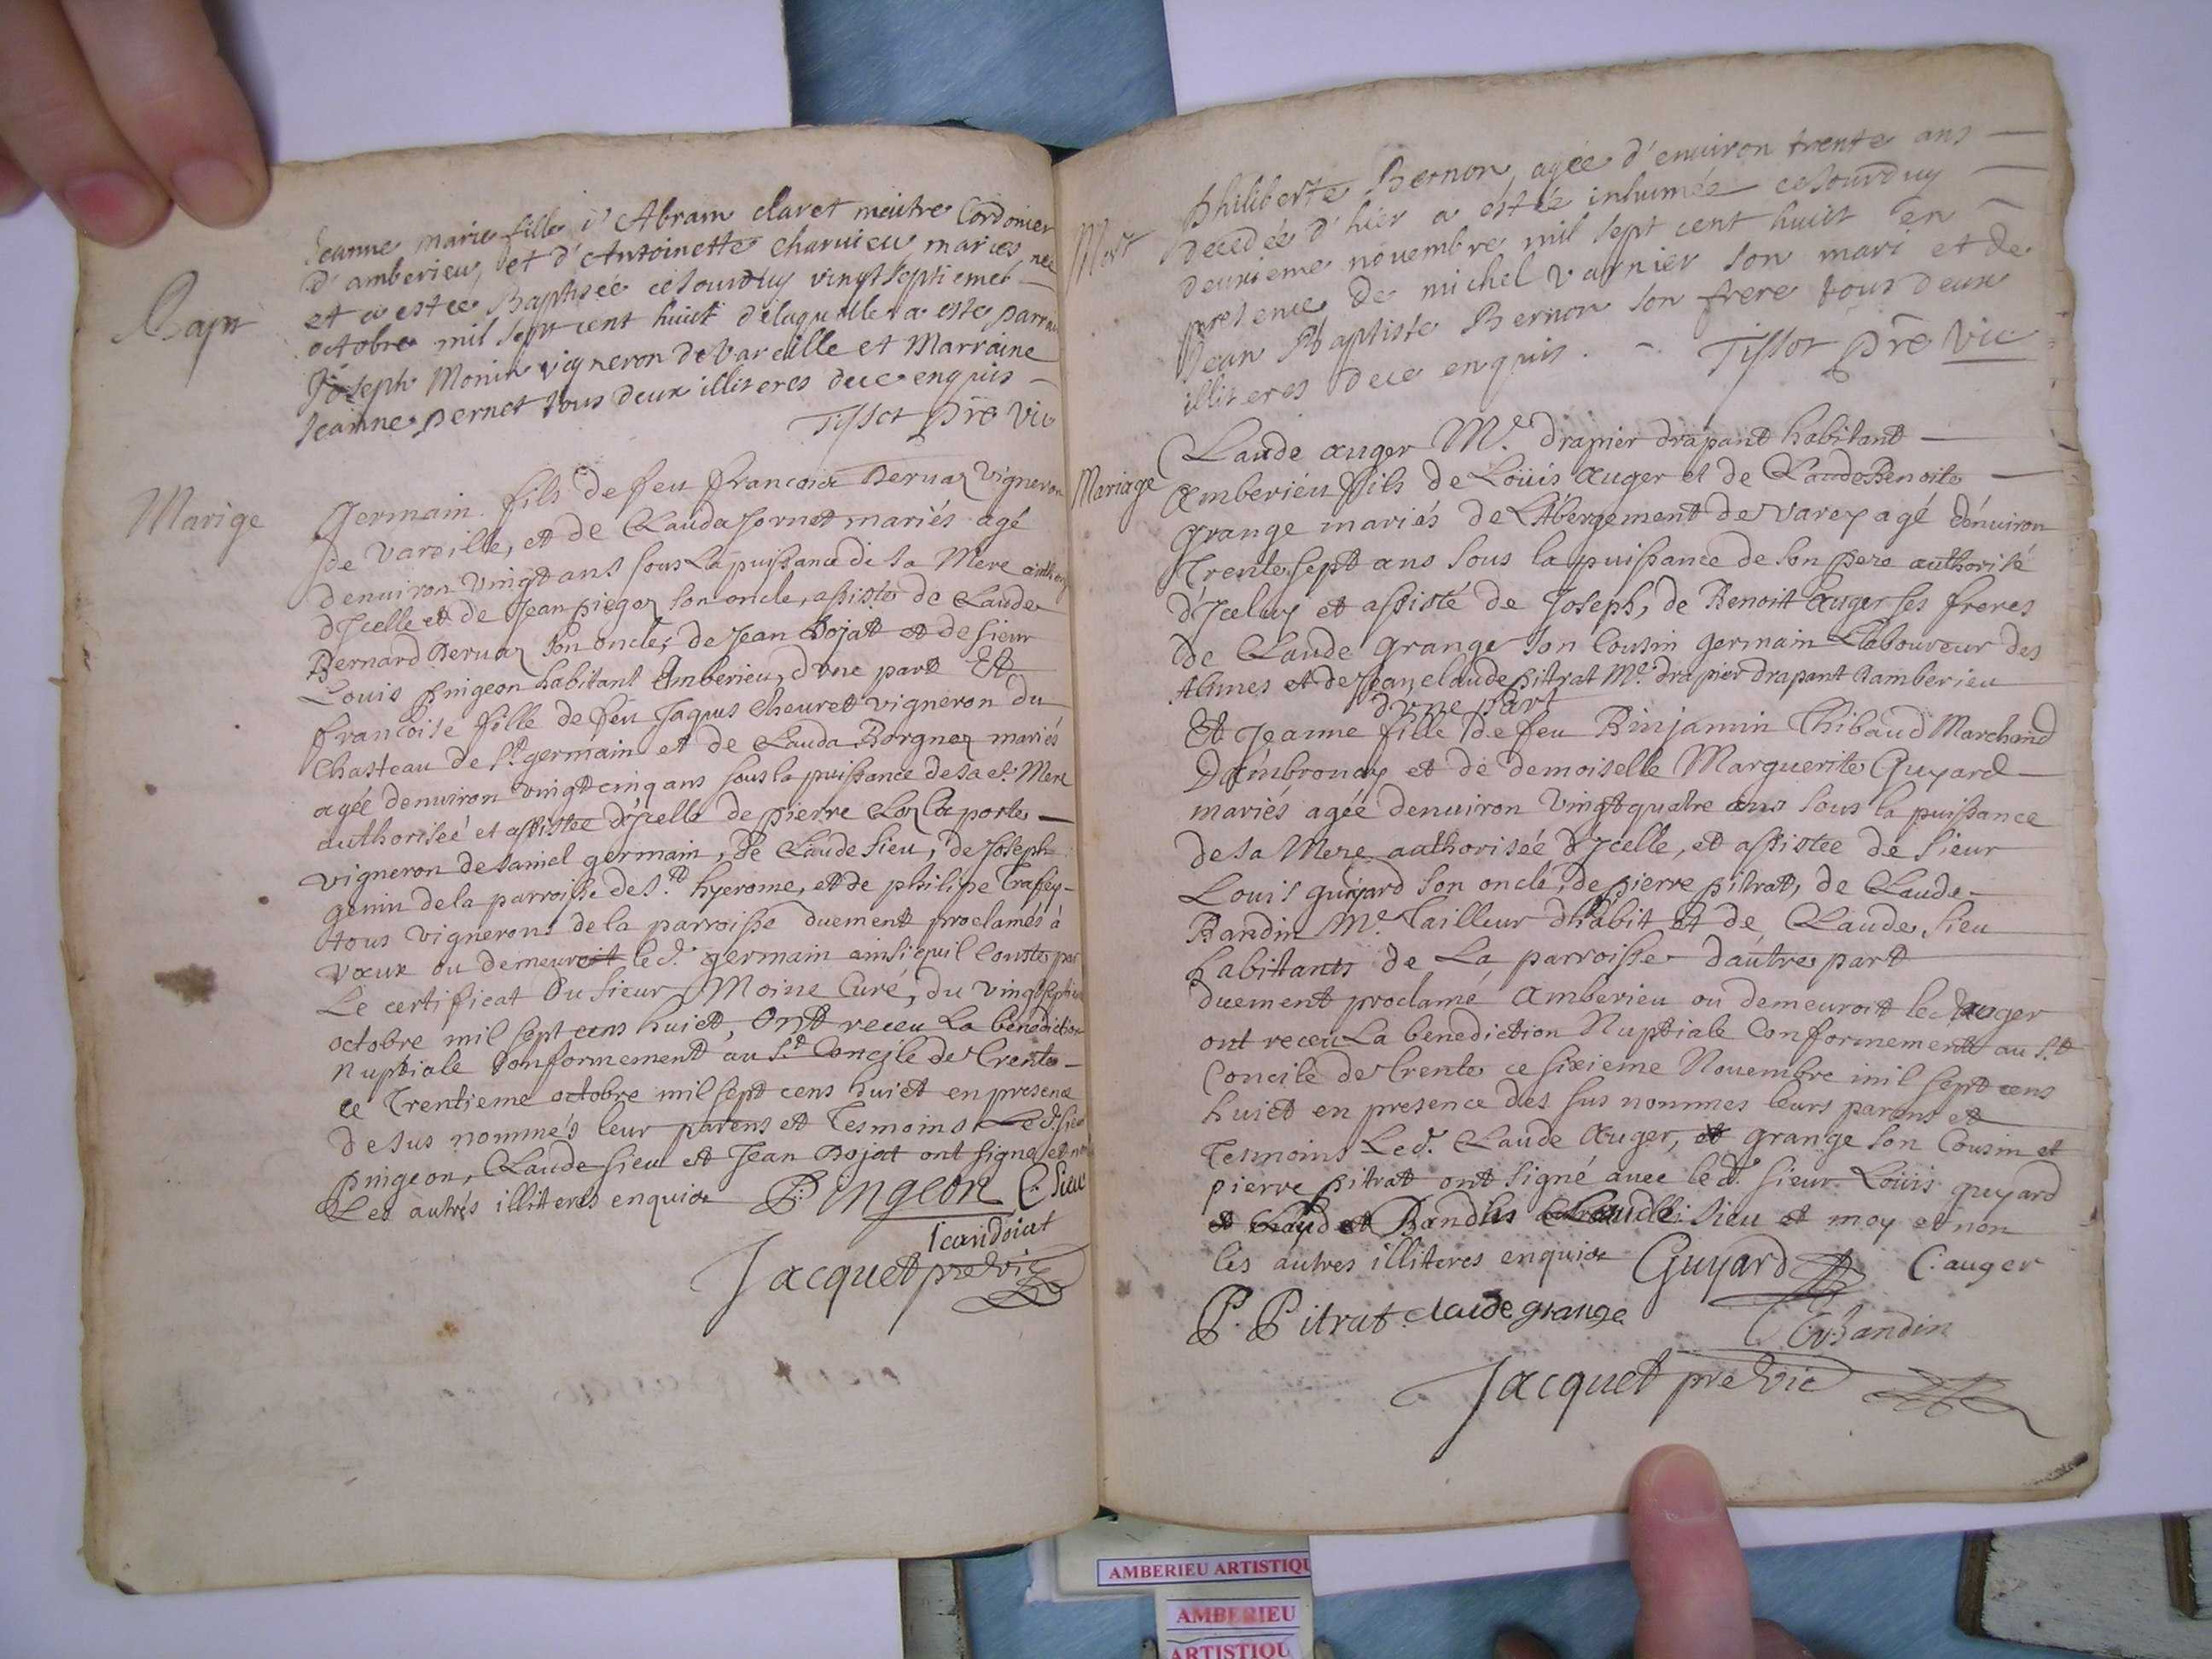 Bapt
Jeanne marie fille d'Abram claret maitre Cordonier
d'amberieu, et d'Antoinette charvieu mariés, née
et a estée Baptisée cejourduy vingtseptieme
octobre mil sept cent huict delaquelle a esté parrain
Joseph Monin vigneron de Vareille et Marraine
Jeanne pernet tous deux illiteres dece enquis
Tissot Prê Vic
Marige
Germain fils de feu francois Dervaz vigneron
de Vareille, et de Clauda Jornet mariés agé
denuiron vingt ans sous La puissance de sa Mere
dJcelle et de Jean piegaz son oncle, assisté de Laude
Bernard Dervaz son oncle, de Jean Dojat et de sieur
Louis pingeon habitant Amberieu, dvne part Et
francoise fille de feu Jaques Cheuret vigneron du
Chasteau de st germain et de Clauda Borgnez mariés
agée denuiron vingt cinq ans sous la puissance de sa et Mere
authoriseé et assistée dJcelle de pierre laporte
vigneron de sainct germain, de Claude sieu, de Joseph
genin de la parroisse de st hyerome, et de philipe
tous vignerons de la parroisse duement proclamés à
vaux ou demeuroit led. germain ainsi quil Conste par
Le certificat Du sieur Moine Curé, du vingtseptieme
octobre mil sept cens huict, Ont receu La benediction
nuptiale Conformement au St Concile de Trente
ce Trentieme octobre mil sept cens huict en presence
de sus nommés leur parens et Tesmoins Led. sieur
pingeon, Claude sieu et Jean Dojat ont signé et non
Les autres illiteres enquis P: pingeon C: Sieu
Jean doiat
Jacquet pre vic
Mort
Philiberte Bernon, agée d'enuiron trente ans
decedée d'hier a estée inhumée cejourduy
deuxieme novembre mil sept cent huict en
presence de michel varnier son mari et de
Jean Baptiste Bernon son frere tous deux
illiteres dece enquis. Tissot Prê Vic
Mariage
Claude auger Me. drapier drapant habitant
Amberieu fils de Loüis Auger et de Claude Benoite
grange mariés de LAbergement de Varey agé dénuiron
Trente sept ans sous la puissance de son pere authorisé
dJceluy et assisté de Joseph, de Benoit Auger ses freres
de Claude grange son Cousin germain Laboureur des
Alimes et de Jean claude pitrat Me. drapier drapant damberieu
dvne part
Et Jeanne fille de feu Binjamin Thibaud Marchand
Dambronay et de demoiselle Marguerite Guyard
mariés agée denuiron vingt quatre ans sous la puissance
de sa Mere authorisée dJcelle, et assistée de sieur
Louis guyard son oncle, de pierre pitrat, de Claude
Bandin Me. Tailleur dhabit et de Claude sieu
habitants de La parroisse dautre part
duement proclamé Amberieu ou demeuroit led auger
ont receu La benediction Nuptiale Conformement au St
Concile de Trente ce sixieme Nouembre mil sept cens
huict en presence des sus nommes leurs parens et
Tesmoins Led. Claude Auger, et grange son Cousin et
pierre pitrat ont signé auec led. sieur Loüis guyard
et Claude sieu et moy et non
les autres illiteres enquis Guyard C: auger
P. Pitrat claude grange
C Bandin
Jacquet pre vic
AMBERIEU ARTISTIQU
AMBERIEU
ARTISTIQU